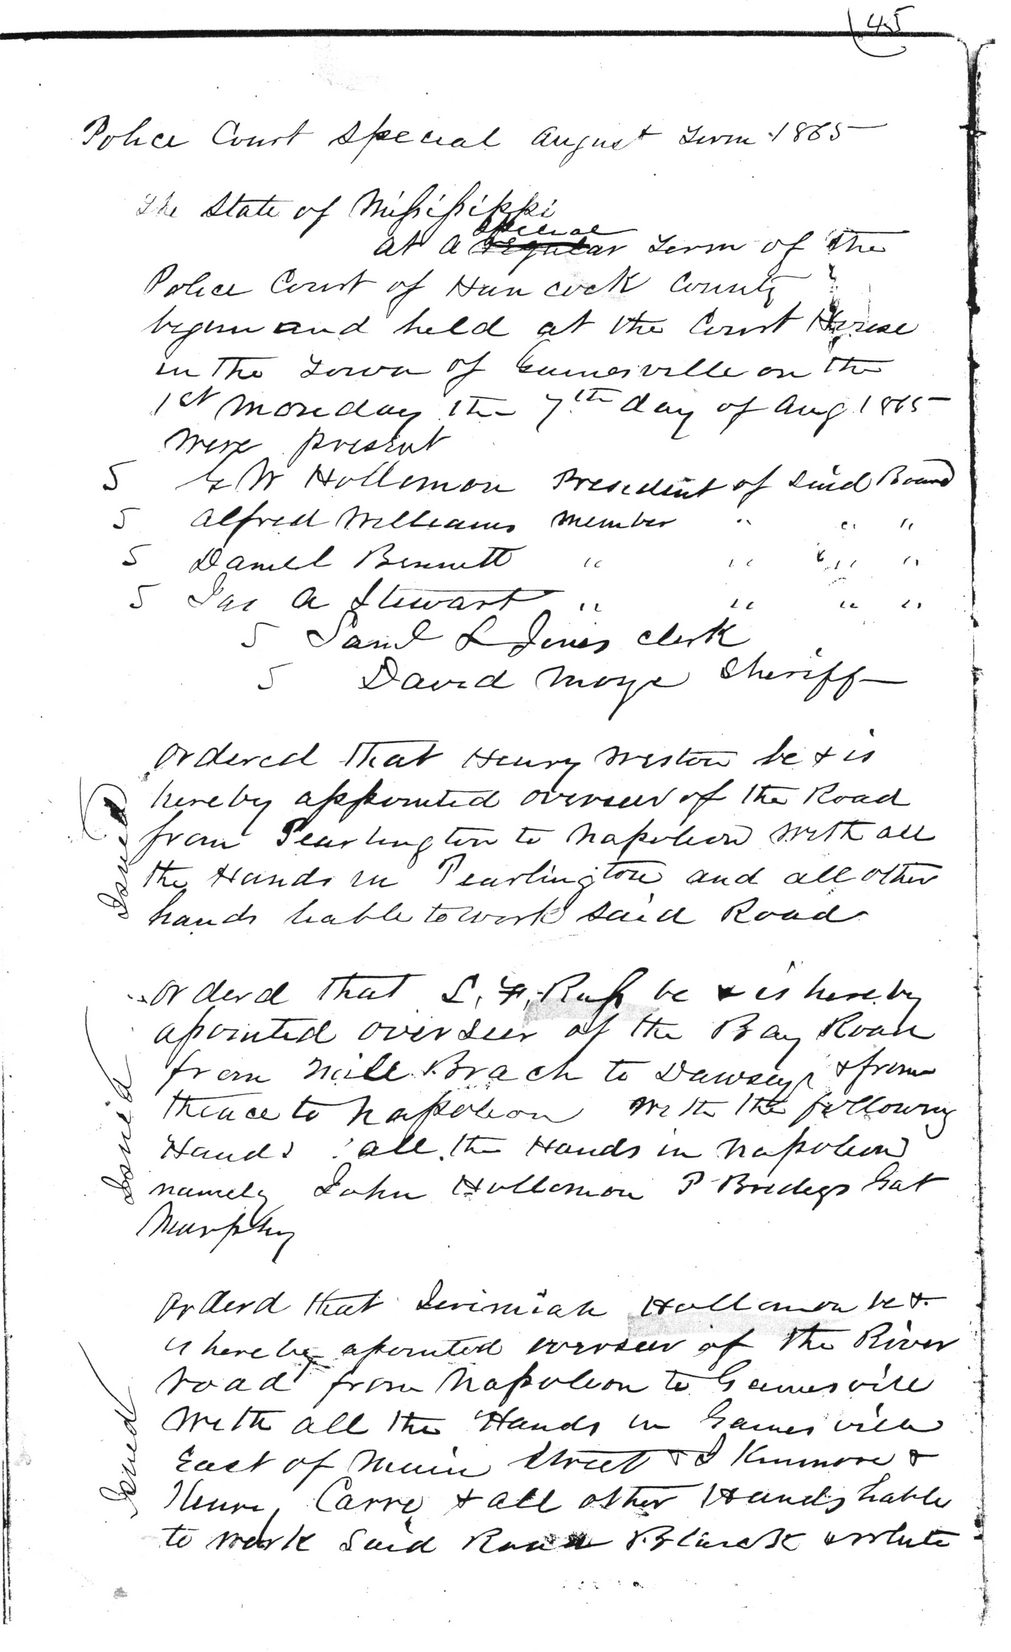 45
Police Court Special August Term 1865
The State of Mississippi
Special
at a regular Term of the
Police Court of Hancock County
begun and held at the Court House
in the Town of Gainesville on the
1st Monday the 7th day of Aug 1865
were present
5 G W Hollomon President of Said Board
5 Alfred Williams member " " "
5 Daniel Bennett " " " "
5 Jas A Stewart " " " "
5 Saml L Jones clerk
5 David Moye Sheriff
Ordered that Henry Weston be & is
hereby appointed overseer of the Road
from Pearlington to Napoleon with all
the Hands in Pearlington and all other
hands liable to work said Road
Issued
Orderd that S. F. Russ be & is hereby
apointed overseer of the Bay Road
from Mill Brach to Dawseys & from
thence to Napoleon with the following
Hands all the Hands in Napoleon
namely John Hollomon P Bridegs Gat
Murphy
Issued
Orderd that Jerimiah Hollomon be &
is hereby apointed overseer of the River
road from Napoleon to Gainesville
with all the Hands in Gainesville
East of Main Street & J Kinmore &
Henry Carre & all other Hands liable
to work Said Road Black & white
Issued